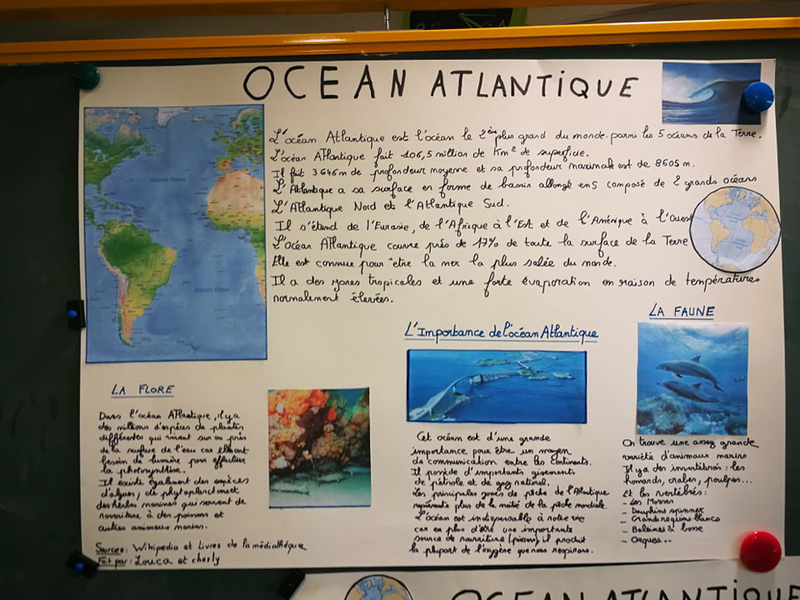 OCEAN ATLANTIQUE
L'océan Atlantique est l'océan le 2ème plus grand du monde parmi les 5 océans de la Terre.
L'océan Atlantique fait 106,5 million de Km² de superficie.
Il fait 3646m de profondeur moyenne et sa profondeur maximale est de 8605 m.
L'Atlantique a sa surface en forme de bassin allongé en S composé de 2 grands océans
L'Atlantique Nord et l'Atlantique Sud.
Il s'étend de l'Eurasie, de l'Afrique à l'Est et de l'Amérique à l'Ouest
L'océan Atlantique couvre près de 17% de toute la surface de la Terre
Elle est connue pour être la mer la plus salée du monde.
Il a des zones tropicales et une forte évaporation en raison de températures
normalement élevées.
LA FLORE
Dans l'océan Atlantique, il y a
des millions d'espèces de plantes
différentes qui vivent sur ou près
de la surface de l'eau car elles ont
besoin de lumière pour effectuer
la photosynthèse.
Il existe également des espèces
d'algues, de phytoplancton et
des herbes marines qui servent de
nourriture à des poissons et
autres animaux marins.
Sources: Wikipedia et Livres de la médiathèque
Fait par: Louca et
L'Importance de l'océan Atlantique
Cet océan est d'une grande
importance pour être un moyen
de communication entre les continents.
Il possède d'importants gisements
de pétrole et de gaz naturel.
Les principales zones de pêche de l'Atlantique
représente plus de la moitié de la pêche mondiale.
L'océan est indispensable à notre vie
car en plus d'être une importante
source de nourriture (poisson) il produit
la plupart de l'oxygène que nous respirons.
LA FAUNE
On trouve une assez grande
variété d'animaux marins
Il y a des invertébrés: les
homards, crabes, poulpes...
Et les vertébrés:
- Les
- Dauphins spinner
- Grands requins blancs
- Baleines à bosse
- Orques...
OCEAN ATLANTIQUE